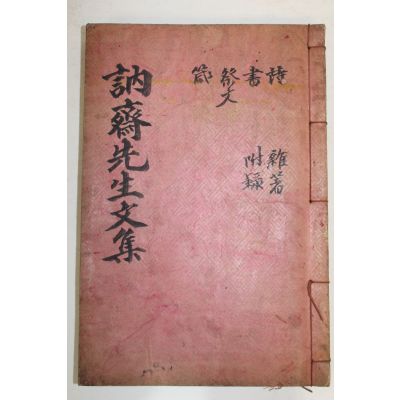 訥齋先生文集
詩
書
祭文
雜著
附錄